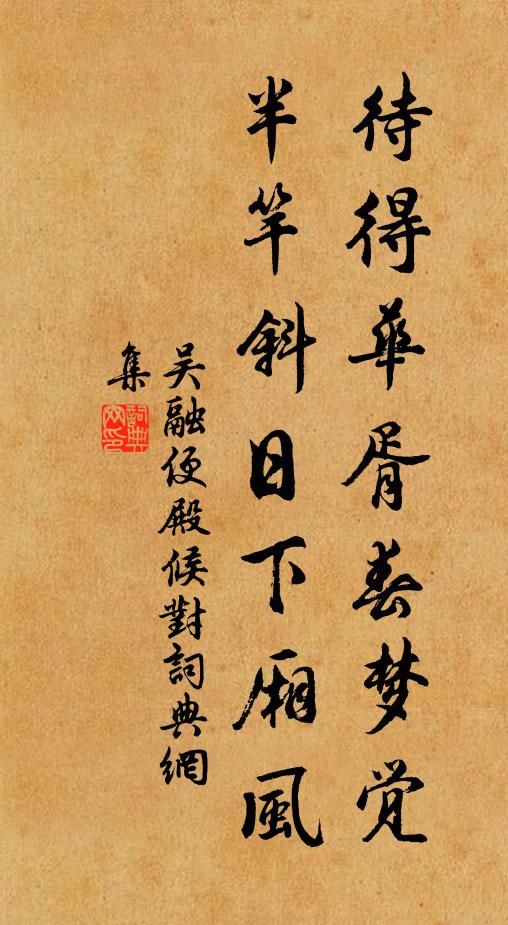 待得華胥春梦觉
半竿斜日下厢風
吴融便殿候對詞典網
集
詞典网印